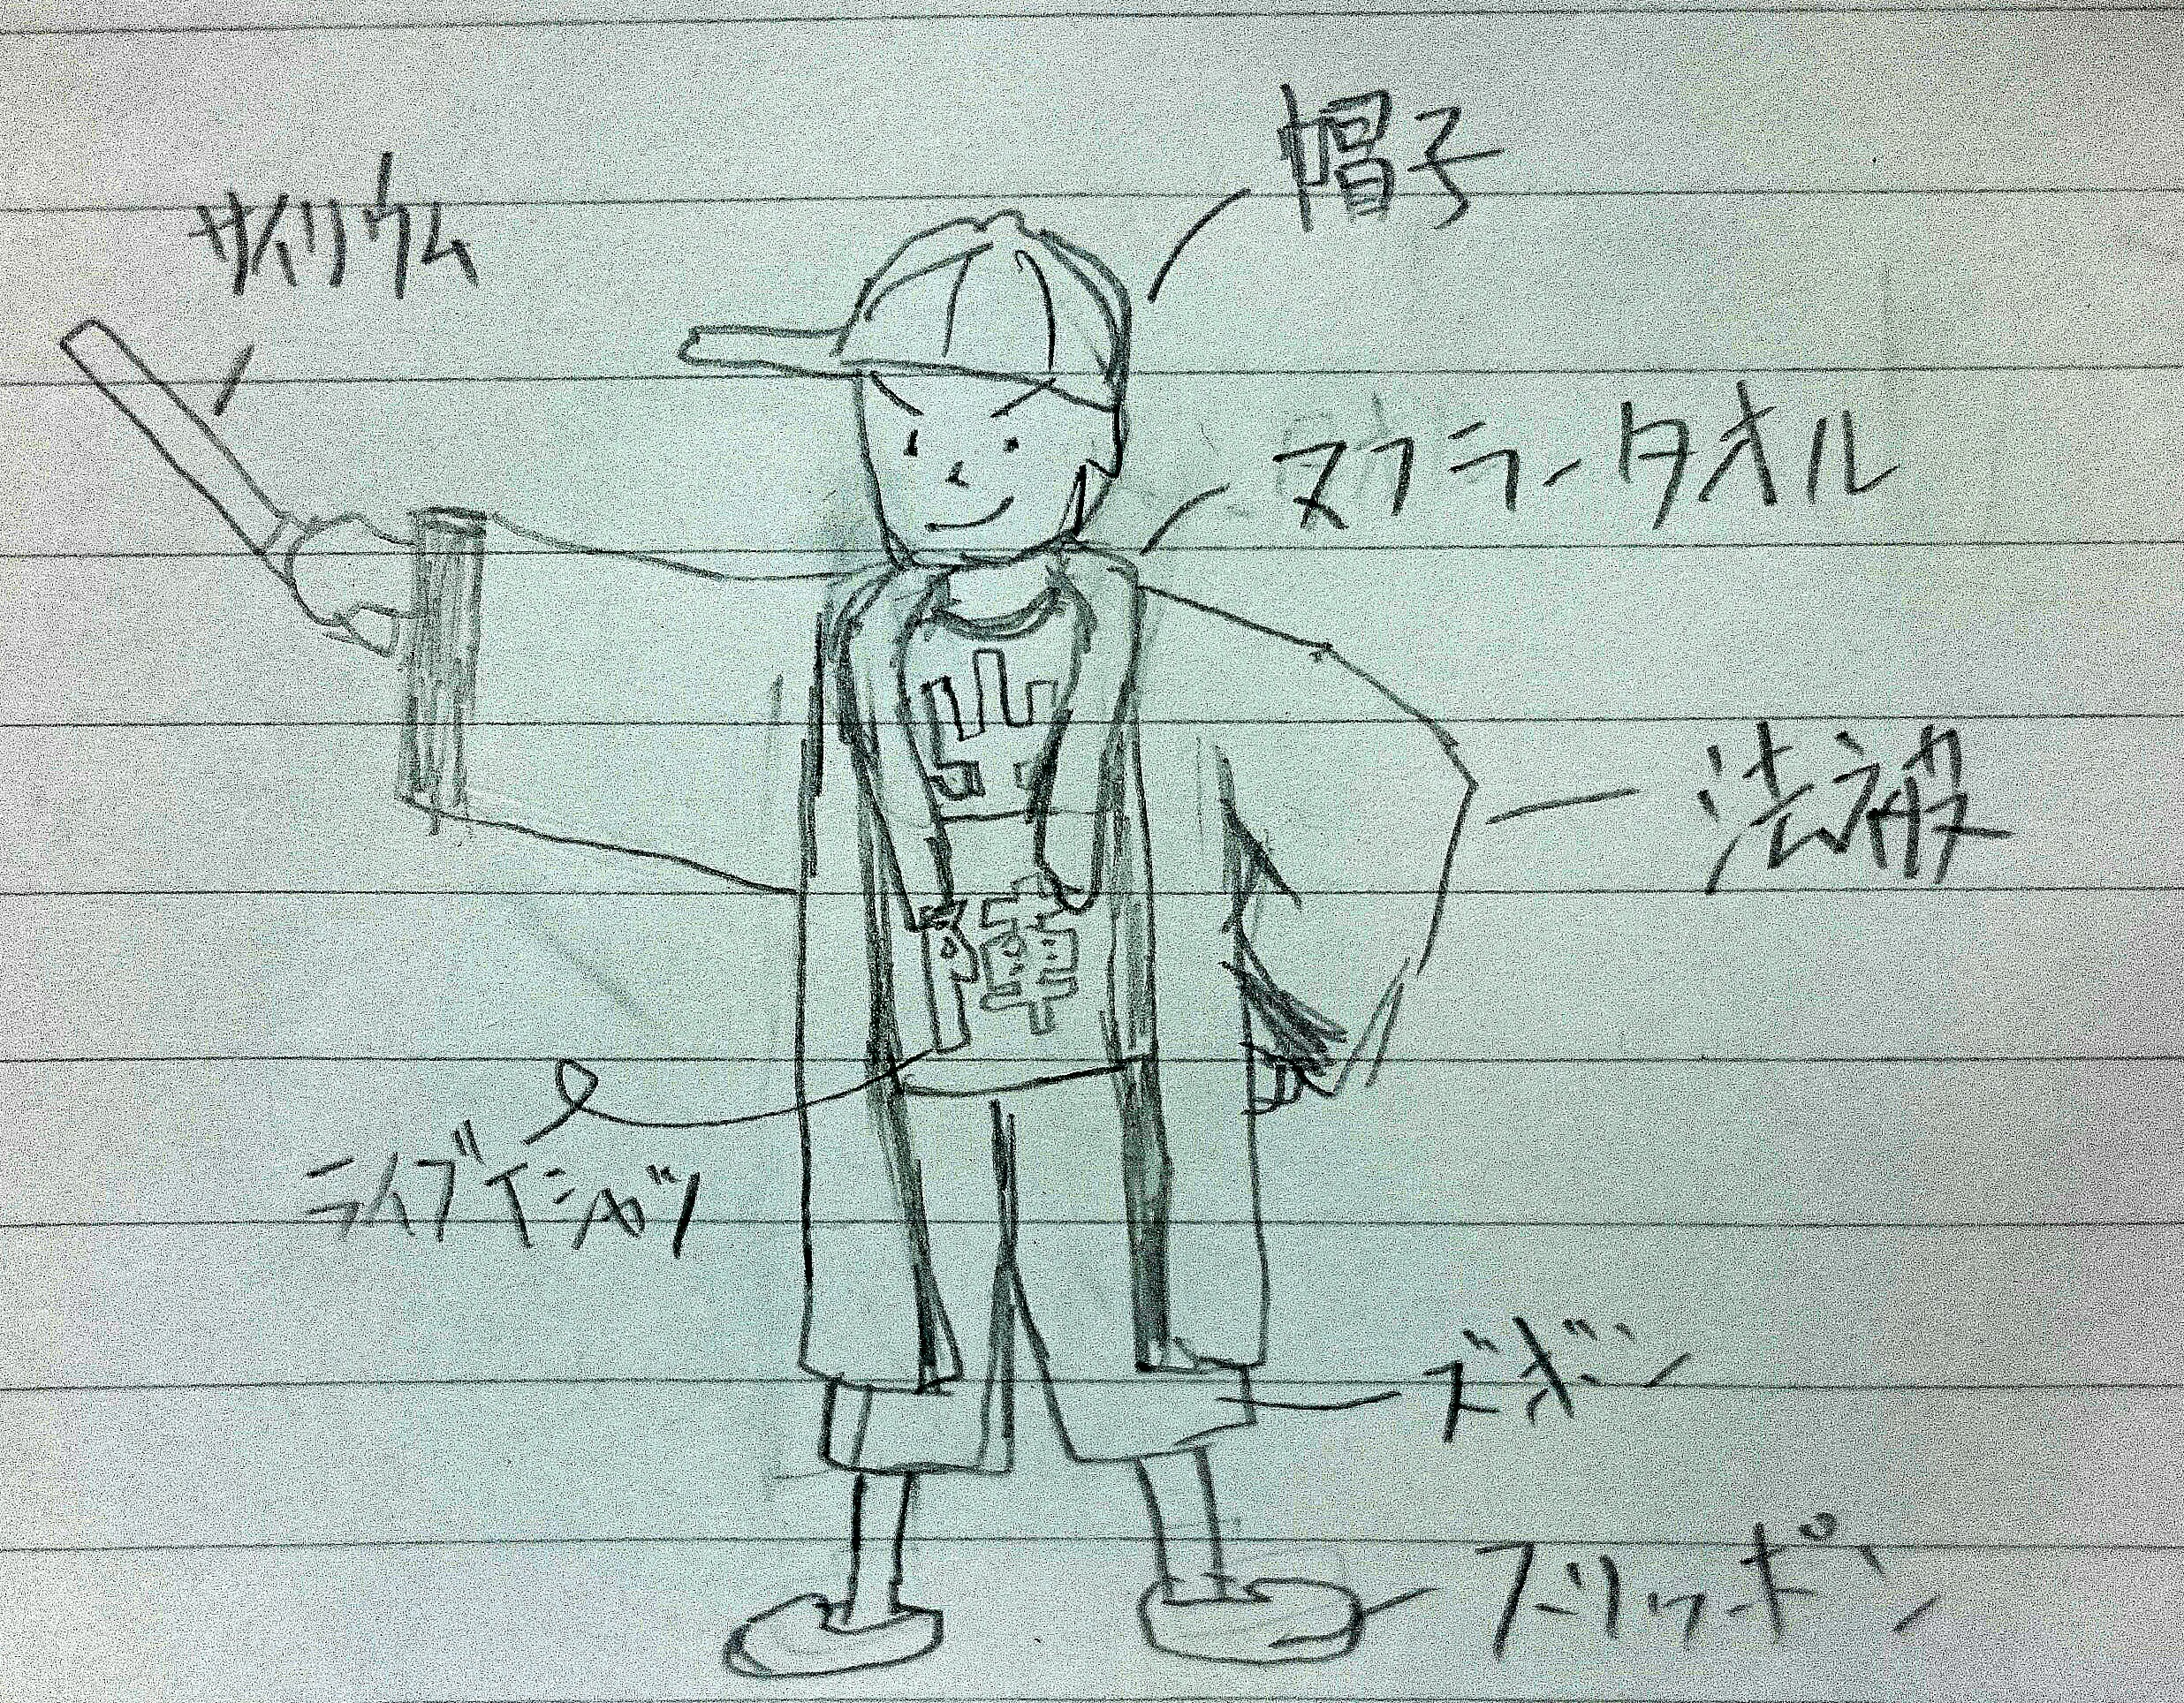 帽子
サイリウム
マフラータオル
法被
ライブTシャツ
ズボン
スリッポン